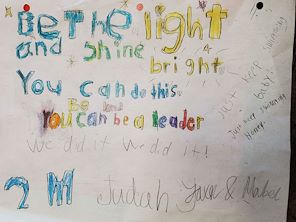 BE THE light
and shine
bright
You can do this
Be kind
You can be a leader
We did it we did it!
2 M Judah Jace & Mabel
Just keep swimming
baby!
Just keep swimming
Honey